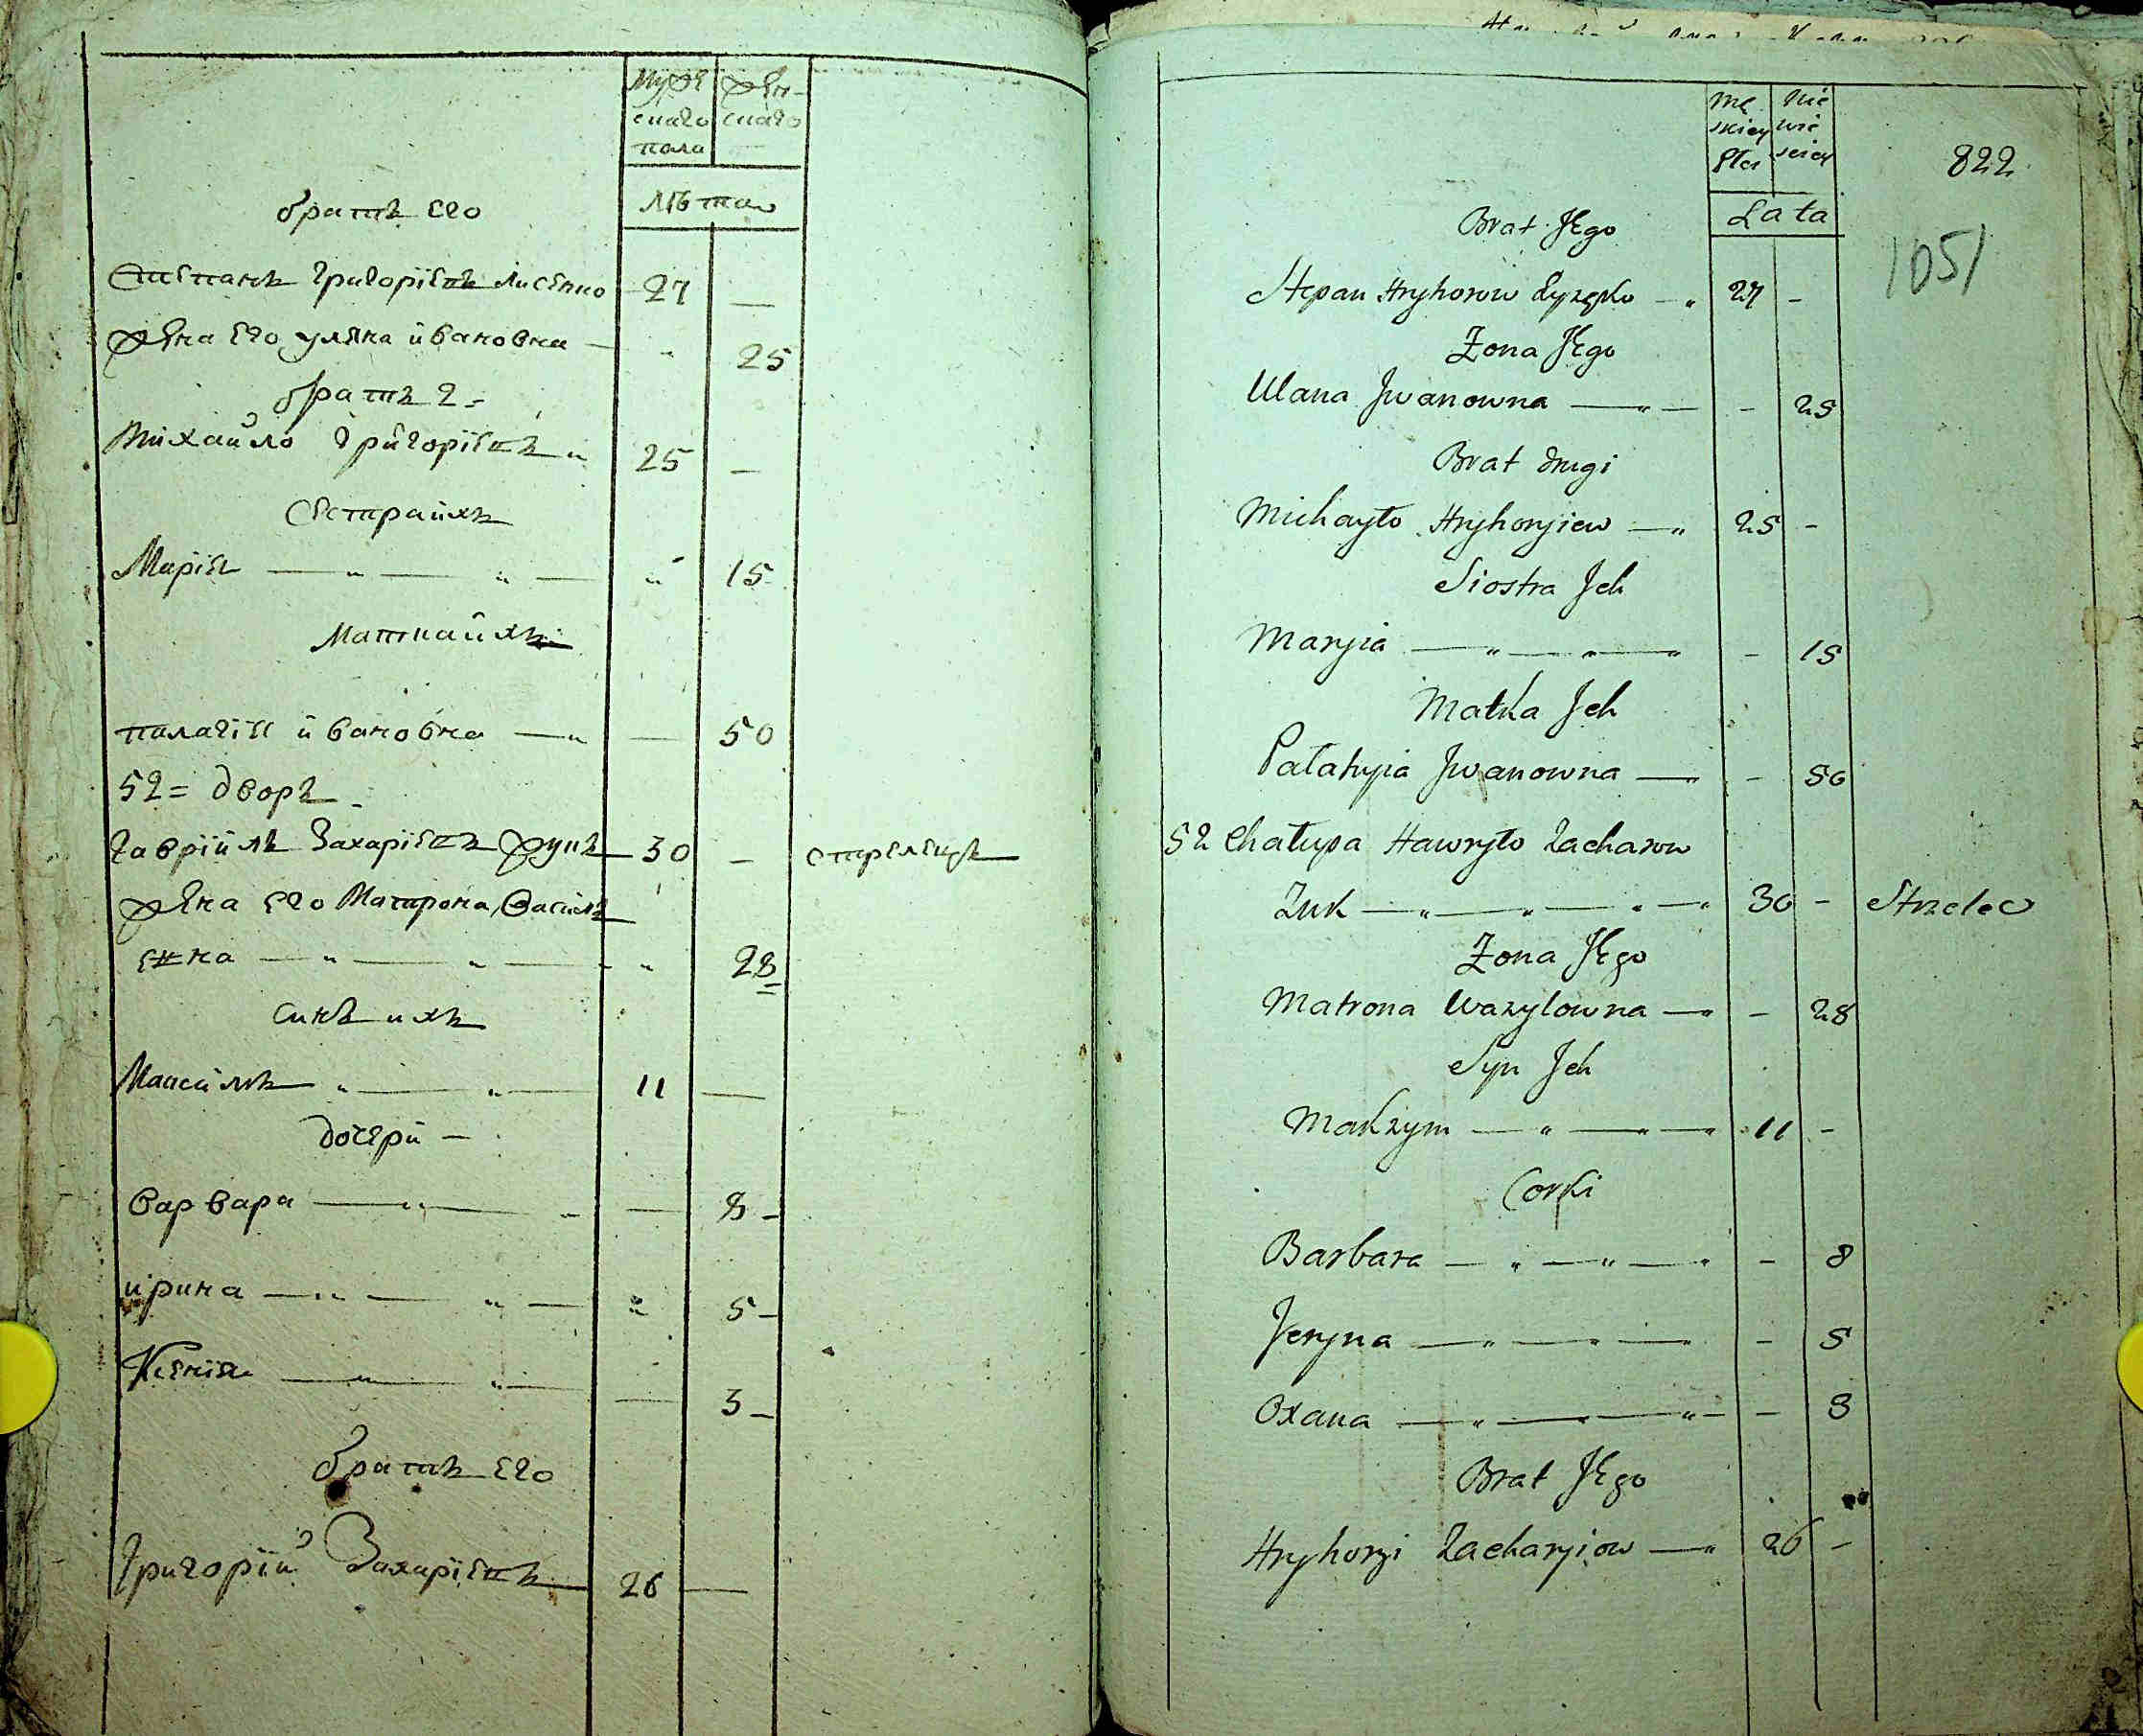 Муже
скаго
пола
жен-
скаго
лѣта
братъ его
Стєпанъ Григорієвъ Лисєнко 27 —
жена єго уляна ивановна — " 25
братъ 2-
Михайло Григорієвъ " 25 —
Сєстра ихъ
Марія — " — " — " 15
Матка ихъ
палагія ивановна — " — 50
52 = дворъ
Гаврійлъ Захарієвъ Жукъ 30 — стрелецъ
жена єго Матрона Василь
євна — " — " — " 28
Синъ ихъ
Максимъ " — " — 11 —
дочєри —
варвара — " — — 8 —
ирина — " — " — " 5 —
Ксенія — " — " — — 3 —
братъ єго
Григорій Захарієвъ 26 —
Mę
skiey
Płci
Nie
wie
sciey
822
Lata
1051
Brat Jego
Stepan Hryhorow Łyzęko — " 27 —
Żona Jego
Ulana Jwanowna — " — - 25
Brat drugi
Michayło Hryhoryiew — " 25 -
Siostra Jch
Maryia — " — " — " - 15
Matka Jch
Pałahyia Jwanowna — " - 50
52 Chałupa Hawryło Zacharow
Żuk — " — " — " — " 30 - Strzelec
Żona Jego
Matrona Wazylowna — " - 28
Syn Jch
Makzym — " — " — " 11 -
Corki
Barbara — " — " — " - 8
Jeryna — " — " — " - 5
Oxana — " — " — " - 3
Brat Jego
Hryhorzi Zacharyiow — " 26 -